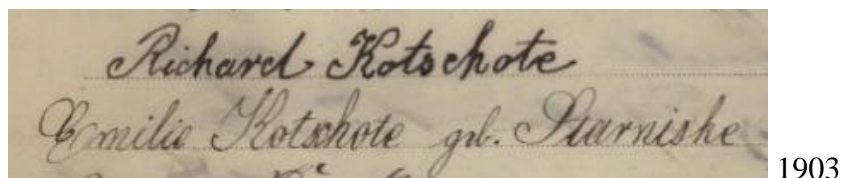 Richard Kotschote
Emilie Kotschote geb. Starniske
1903